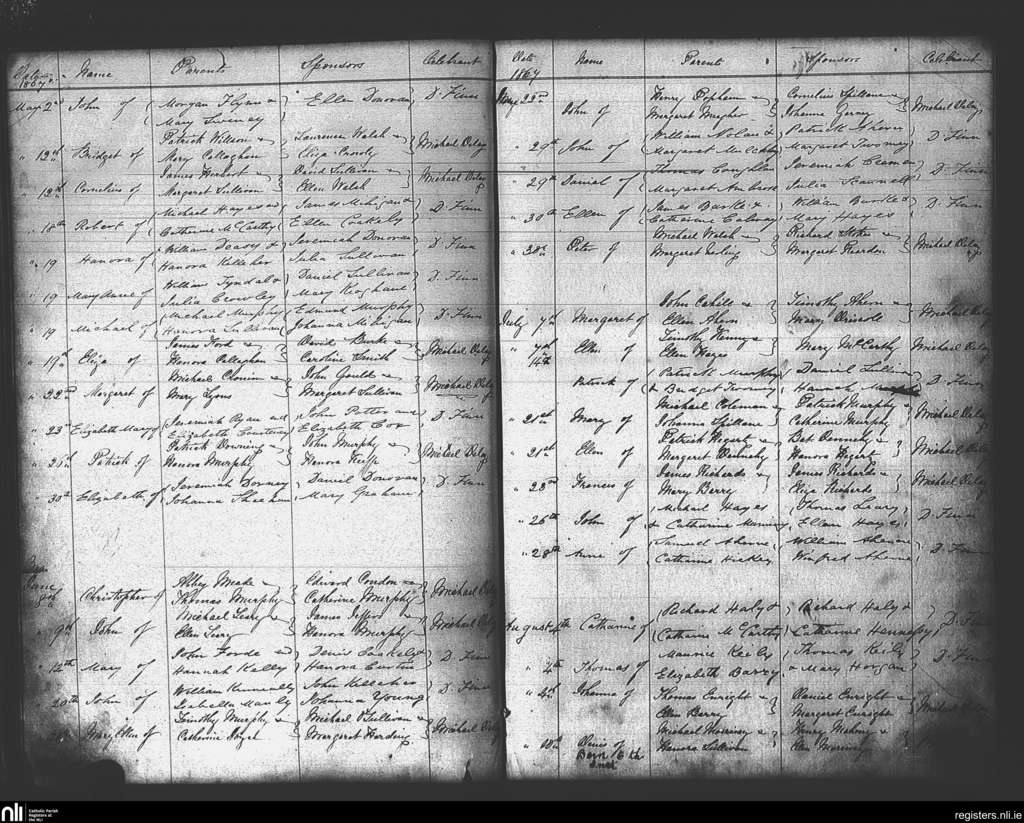 Date 1867 Name Parents Sponsors Celebrant
May 2d John of Morgan Flynn & Ellen Donovan D. Finn
Mary Sweeney
" 12th Bridget of Patrick Willson & Laurence Walsh & Michael Delay
Mary Callaghan Eliza Crowly
" 13th Cornelius of James Herbert & David Sullivan & Michael Delay
Margaret Sullivan Ellen Walsh
" 18th Robert of Michael Hayes & James Mehigan & D. Finn
Catherine McCarthy Ellen
" 19 Hanora of William Deasy & Jeremiah Donovan D. Finn
Hanora Kelleher Julia Sullivan
" 19 Mary Anne of William Tyndal & Daniel Sullivan D. Finn
Julia Crowley Mary Keoghane
" 19 Michael of Michael Murphy Edmund Murphy D. Finn
Hanora Sullivan Johanna Mehigan
" 19th Eliza of James Ford & David Burke & Michael Delay
Hanora Callaghan Caroline Smith
" 22nd Margaret of Michael Cronin & John Gould & Michael Delay
Mary Lyons Margaret Sullivan
" 23d Elizabeth Mary of Jeremiah Ryan and John Potter and D. Finn
Elizabeth Courtney Elizabeth Cox
" 26th Patrick of Patrick Downing & John Murphy & Michael Delay
Hanora Murphy Hanora
" 30th Elizabeth of Jeremiah Downey Daniel Donovan D. Finn
Johanna Sheehan Mary Graham
June 8th Christopher of Abby Meade & Edward Condon & Michael Delay
Thomas Murphy Catherine Murphy
" 9th John of Michael Leary & James & Michael Delay
Ellen Leary Hanora Murphy
" 14th Mary of John Forde & Denis & D. Finn
Hannah Kelly Hanora Curtin
" 20th John of William Kenneally John Kelleher D. Finn
Isabella Manly Johanna Young
Mary Ellen of Timothy Murphy & Michael O'Sullivan & Michael Delay
Catherine Margaret Harding
Date 1867 Name Parents Sponsors Celebrant
June 23rd John of Henry Popham & Cornelius Spillane & Michael Delay
Margaret Meagher Johanna
" 29th John of William Nolan & Patrick Ahern D. Finn
Margaret Margaret Twomey
" 29th Daniel of Thomas Coughlan Jeremiah D. Finn
Margaret Ambrose Julia
" 30th Ellen of James Burke & William Burke & D. Finn
Catherine Mary Hayes
" 30th Peter of Michael Walsh & Richard & Michael Delay
Margaret Margaret Reardon
July 7th Margaret of John Cahill & Timothy Ahern & Michael Delay
Ellen Ahern Mary Driscole
" 7th Ellen of Timothy Kenny & Mary McCarthy Michael Delay
Ellen Hayes
14th Patrick of Patrick Murphy Daniel Sullivan D. Finn
& Bridget Twomey Hannah
" 21st Mary of Michael Coleman & Patrick Murphy & Michael Delay
Johanna Spillane Catherine Murphy
" 21st Ellen of Patrick Hegart & Bat Dennehy & Michael Delay
Margaret Dennehy Hanora Hegart
" 23rd Frances of James Richards & James Richards & Michael Delay
Mary Barry Eliza Richards
" 26th John of Michael Hayes Thomas Leary D. Finn
& Catharine Ellen Hayes
" 28th Anne of Samuel Aherne William Aherne D. Finn
Catharine Hickey Winifred Aherne
August 4th Catharine of Richard Haly & Richard Haly & D. Finn
Catharine McCarthy Catharine Hennessy
" 4th Thomas of Maurice Keily Thomas Keily D. Finn
Elizabeth Barry & Mary Horgan
" 4th Johanna of Thomas Enright & Daniel Enright & Michael Delay
Ellen Barry Margaret Enright
" 18th Denis of Michael Morrissey & Henry Mahony &
Hanora Sullivan Ellen Morrissey
Born 16th Inst
nli Catholic Parish Registers at the NLI
registers.nli.ie